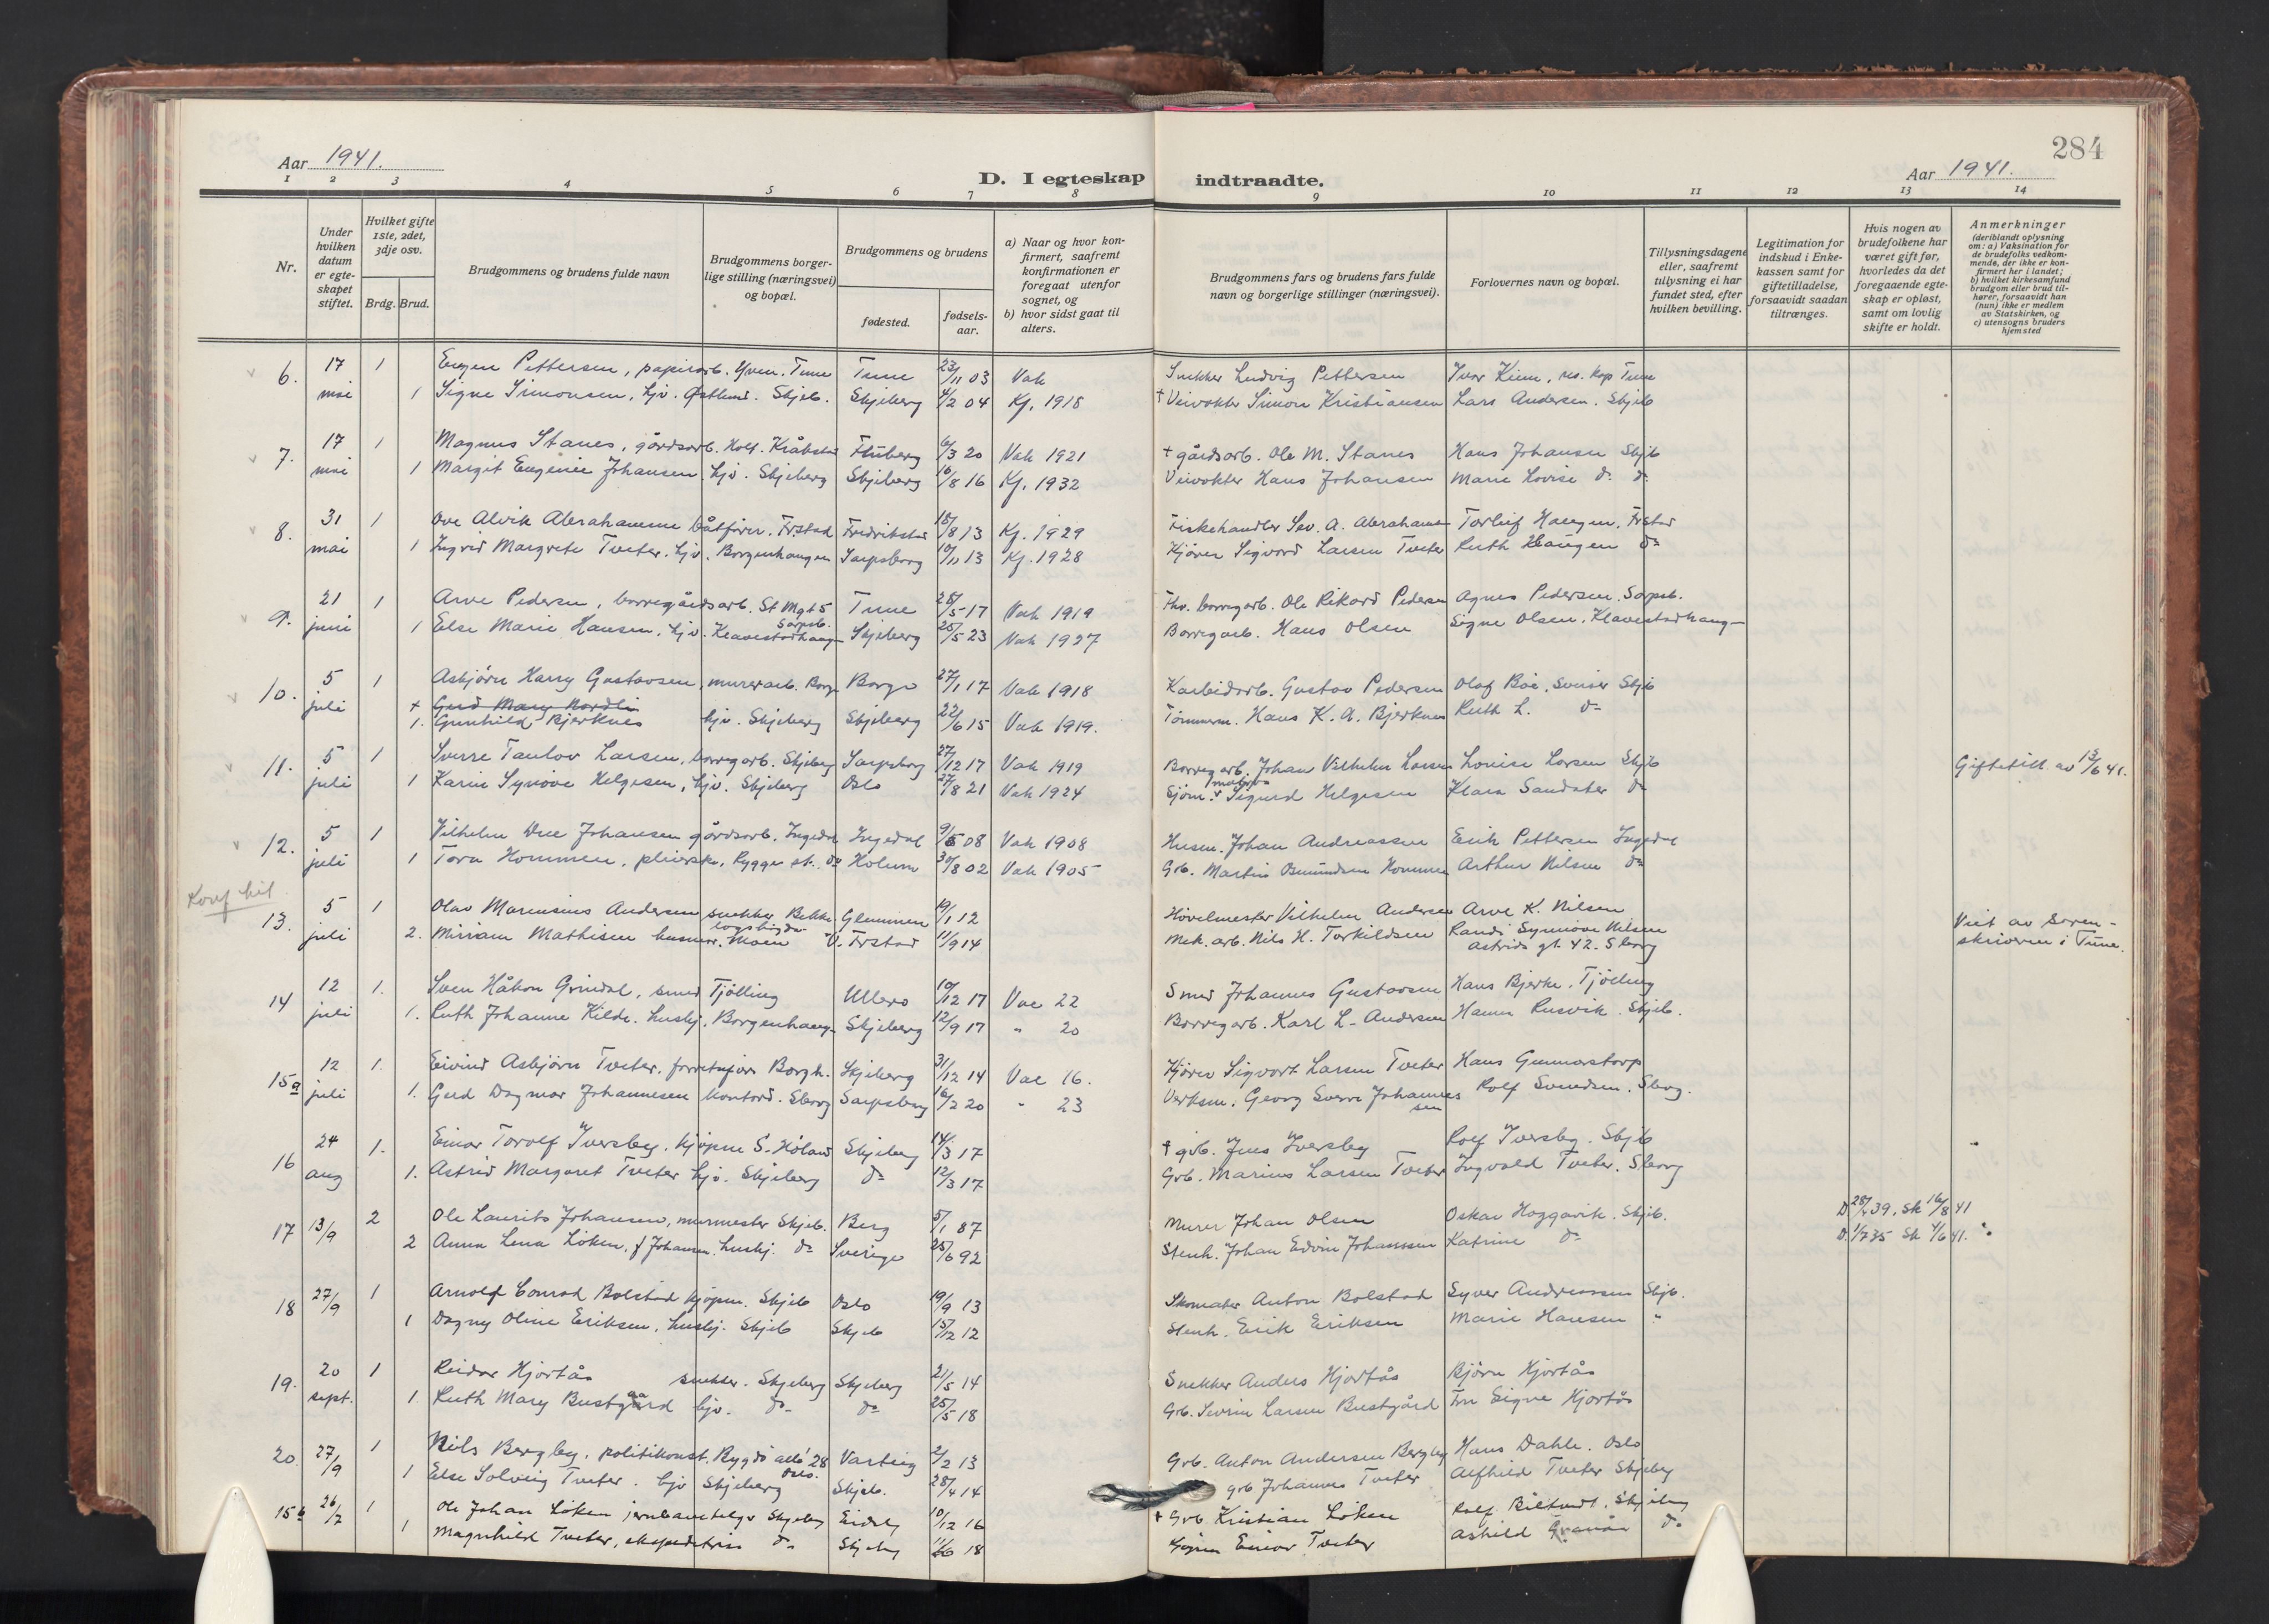 284
Aar 1941.
Aar 1941.
D. I egteskap indtraadte.
1 2 3 4 5 6 7 8 9 10 11 12 13 14
Nr.
Under hvilken datum er egteskapet stiftet.
Hvilket gifte 1ste, 2det, 3dje osv.
Brdg. Brud.
Brudgommens og brudens fulde navn
Brudgommens borgerlige stilling (næringsvei) og bopæl.
Brudgommens og brudens
fødested.
fødsels-aar.
a) Naar og hvor konfirmert, saafremt konfirmationen er foregaat utenfor sognet, og
b) hvor sidst gaat til alters.
Brudgommens fars og brudens fars fulde navn og borgerlige stillinger (næringsvei).
Forlovernes navn og bopæl.
Tillysningsdagene eller, saafremt tillysning ei har fundet sted, efter hvilken bevilling.
Legitimation for indskud i Enkekassen samt for giftetilladelse, forsaavidt saadan tiltrænges.
Hvis nogen av brudefolkene har været gift før, hvorledes da det foregaaende egteskap er opløst, samt om lovlig skifte er holdt.
Anmerkninger
(deriblandt oplysning om: a) Vaksination for de brudefolks vedkommende, der ikke er konfirmert her i landet; b) hvilket kirkesamfund brudgom eller brud tilhører, forsaavidt han (hun) ikke er medlem av Statskirken, og c) utensogns bruders hjemsted
6. 17 mai 1 Eugen Pettersen, papirarb. Yven. Tune Tune 23/11 03 Vak Snekker Ludvig Pettersen Ivar Kiem, res. kap Tune
1 Signe Simonsen, hjv. Østlund. Skjeb. Skjeberg 4/2 04 Kf. 1918 † Veivokter Simon Kristiansen Lars Andersen. Skjeb
7. 17 mai 1 Magnus Stanes, gårdsarb. Holt. Kråkstad Fluberg 6/3 20 Vak 1921 † gårdsarb. Ole M. Stanes Hans Johansen Skjeb
1 Margit Eugenie Johansen hjv. Skjeberg Skjeberg 16/8 16 Kf. 1932 Veivokter Hans Johansen Marie Lovise do do
8. 31 mai 1 Ove Alvik Abrahamsen båtfører. Frstad Fredrikstad 18/8 13 Kf. 1929 Fiskehandler Sev. A. Abrahamsen Torleif Haugen. Frstad
1 Ingrid Margrete Tveter. hjv. Borgenhaugen Sarpsborg 10/11 13 Kf. 1928 Kjører Sigvard Larsen Tveter Ruth Haugen do
9. 21 juni 1 Arve Pedersen, borregårdsarb. St Mgt 5 Sarpsb. Tune 28/5 17 Vak 1919 Fhv. borregarb. Ole Rikard Pedersen Agnes Pedersen. Sarpsb.
1 Else Marie Hansen, hjv. Klavestadhaug Skjeberg 25/5 23 Vak 1927 Borregarb. Hans Olsen Signe Olsen. Klavestadhaug
10. 5 juli 1 Asbjørn Harry Gustavsen, murerarb. Borge Borge 27/1 17 Vak 1918 Karbidarb. Gustav Pedersen Olaf Bøe, sveiser Skjeb
Gerd Mary Nordli
1. Gunhild Bjerknes hjv. Skjeberg Skjeberg 22/6 15 Vak 1919. Tømmerm. Hans K. A. Bjerknes Ruth L. do
11. 5 juli 1 Sverre Tanlov Larsen, borregarb. Skjeberg Sarpsborg 27/12 17 Vak 1919 Borregarb. Johan Vilhelm Larsen Louise Larsen Skjeb Giftetill. av 13/6 41.
1 Karin Synøve Helgesen, hjv. Skjeberg Oslo 27/8 21 Vak 1924 Sjøm. Sigurd Helgesen Klara Sandster do
12. 5 juli 1 Vilhelm Due Johansen gårdsarb. Ingedal Ingedal 9/6 08 Vak 1908 Husm. Johan Andreassen Erik Pettersen Ingedal
1 Tora Hommen, pleierske, Rygge st. do Holum 30/8 02 Vak 1905 Grb. Martin Osmundsen Hommen Arthur Nilsen do
13. 5 juli 1 Olav Marensius Andersen snekker Bekke Glemmen 19/1 12 Høvelmester Vilhelm Andersen Arve K. Nilsen Viet av sorenskriveren i Tune.
2. Mirram Mathisen husmor. Moen V. Frstad 11/9 14 Mek. arb. Nils H. Torkildsen Randi Synnøve Nilsen Astrids gt. 42. Sborg
14 12 juli 1. Sven Håkon Grindal, smed Tjølling Ullerø 10/12 17 Vac 22 Smed Johannes Gustavsen Hans Bjerke, Tjølling
1. Ruth Johanne Kilde. hushj. Borgenhaug. Skjeberg 12/9 17 " 20 Borregarb. Karl L. Andersen Hanna Rusvik. Skjeb.
15a 12 juli 1. Eivind Asbjørn Tveter, forretnfører Borgh. Skjeberg 31/12 14 Vac 16. Kjører Sigvart Larsen Tveter Hans Gunnarstorp
1. Gerd Dagmar Johannesen kontord. Sborg Sarpsborg 16/2 20 " 23 Verksm. Georg Sverre Johannessen Rolf Svendsen. Sborg.
16 24 aug 1. Einar Torolf Iversby, kjøpm S. Høland Skjeberg 14/3 17 † grb. Jens Iversby Rolf Iversby. Skjeb
1. Astrid Margaret Tveter hjv. Skjeberg do 12/3 17 Grb. Marius Larsen Tveter Ingvald Tveter. Sborg
17 13/9 2 Ole Laurits Johansen, murmester Skjeb. Berg 5/1 87 Murer Johan Olsen Oskar Hoggavik. Skjeb. D 28/4 39. Sk 16/8 41
2 Anna Lena Løken, f Johansen. hushj. do Sverige 25/6 92 Stenh. Johan Edvin Johannesen Katrine do D. 1/7 35 Sk 4/6 41.
18 27/9 1 Arnolf Conrad Bolstad kjøpm. Skjeb Oslo 19/9 13 Skomaker Anton Bolstad Syver Andreassen Skjb.
1 Dagny Oline Eriksen, hushj. Skjeb Skjeb 15/12 12 Stenh. Erik Eriksen Marie Hansen "
19. 20 sept. 1 Reidar Hjortås snekker. Skjeberg Skjeberg 21/5 14 Snekker Anders Hjortås Bjørn Hjortås
1 Ruth Mary Bustgaard hjv. do do 25/5 18 Grb. Severin Larsen Bustgård Fru Signe Hjortås
20. 27/9 1 Nils Bergby, politikonst. Bygdø allé 28 Oslo. Varteig 2/2 13 Grb. Anton Andersen Bergby Hans Dahle. Oslo
1 Else Solveig Tveter. hjv Skjeberg Skjeb. 28/4 14 grb Johannes Tveter Alfhild Tveter Skjeberg
15b 26/7 1 Ole Johan Løken jernbanebetj. Skjeberg Eidsb 10/12 16 † Grb. Kristian Løken Rolf Skjeberg
1 Magnhild Tveter, ekspeditrise do Skjeberg 11/6 18 Einar Tveter Åshild Granås do
Konf. hit